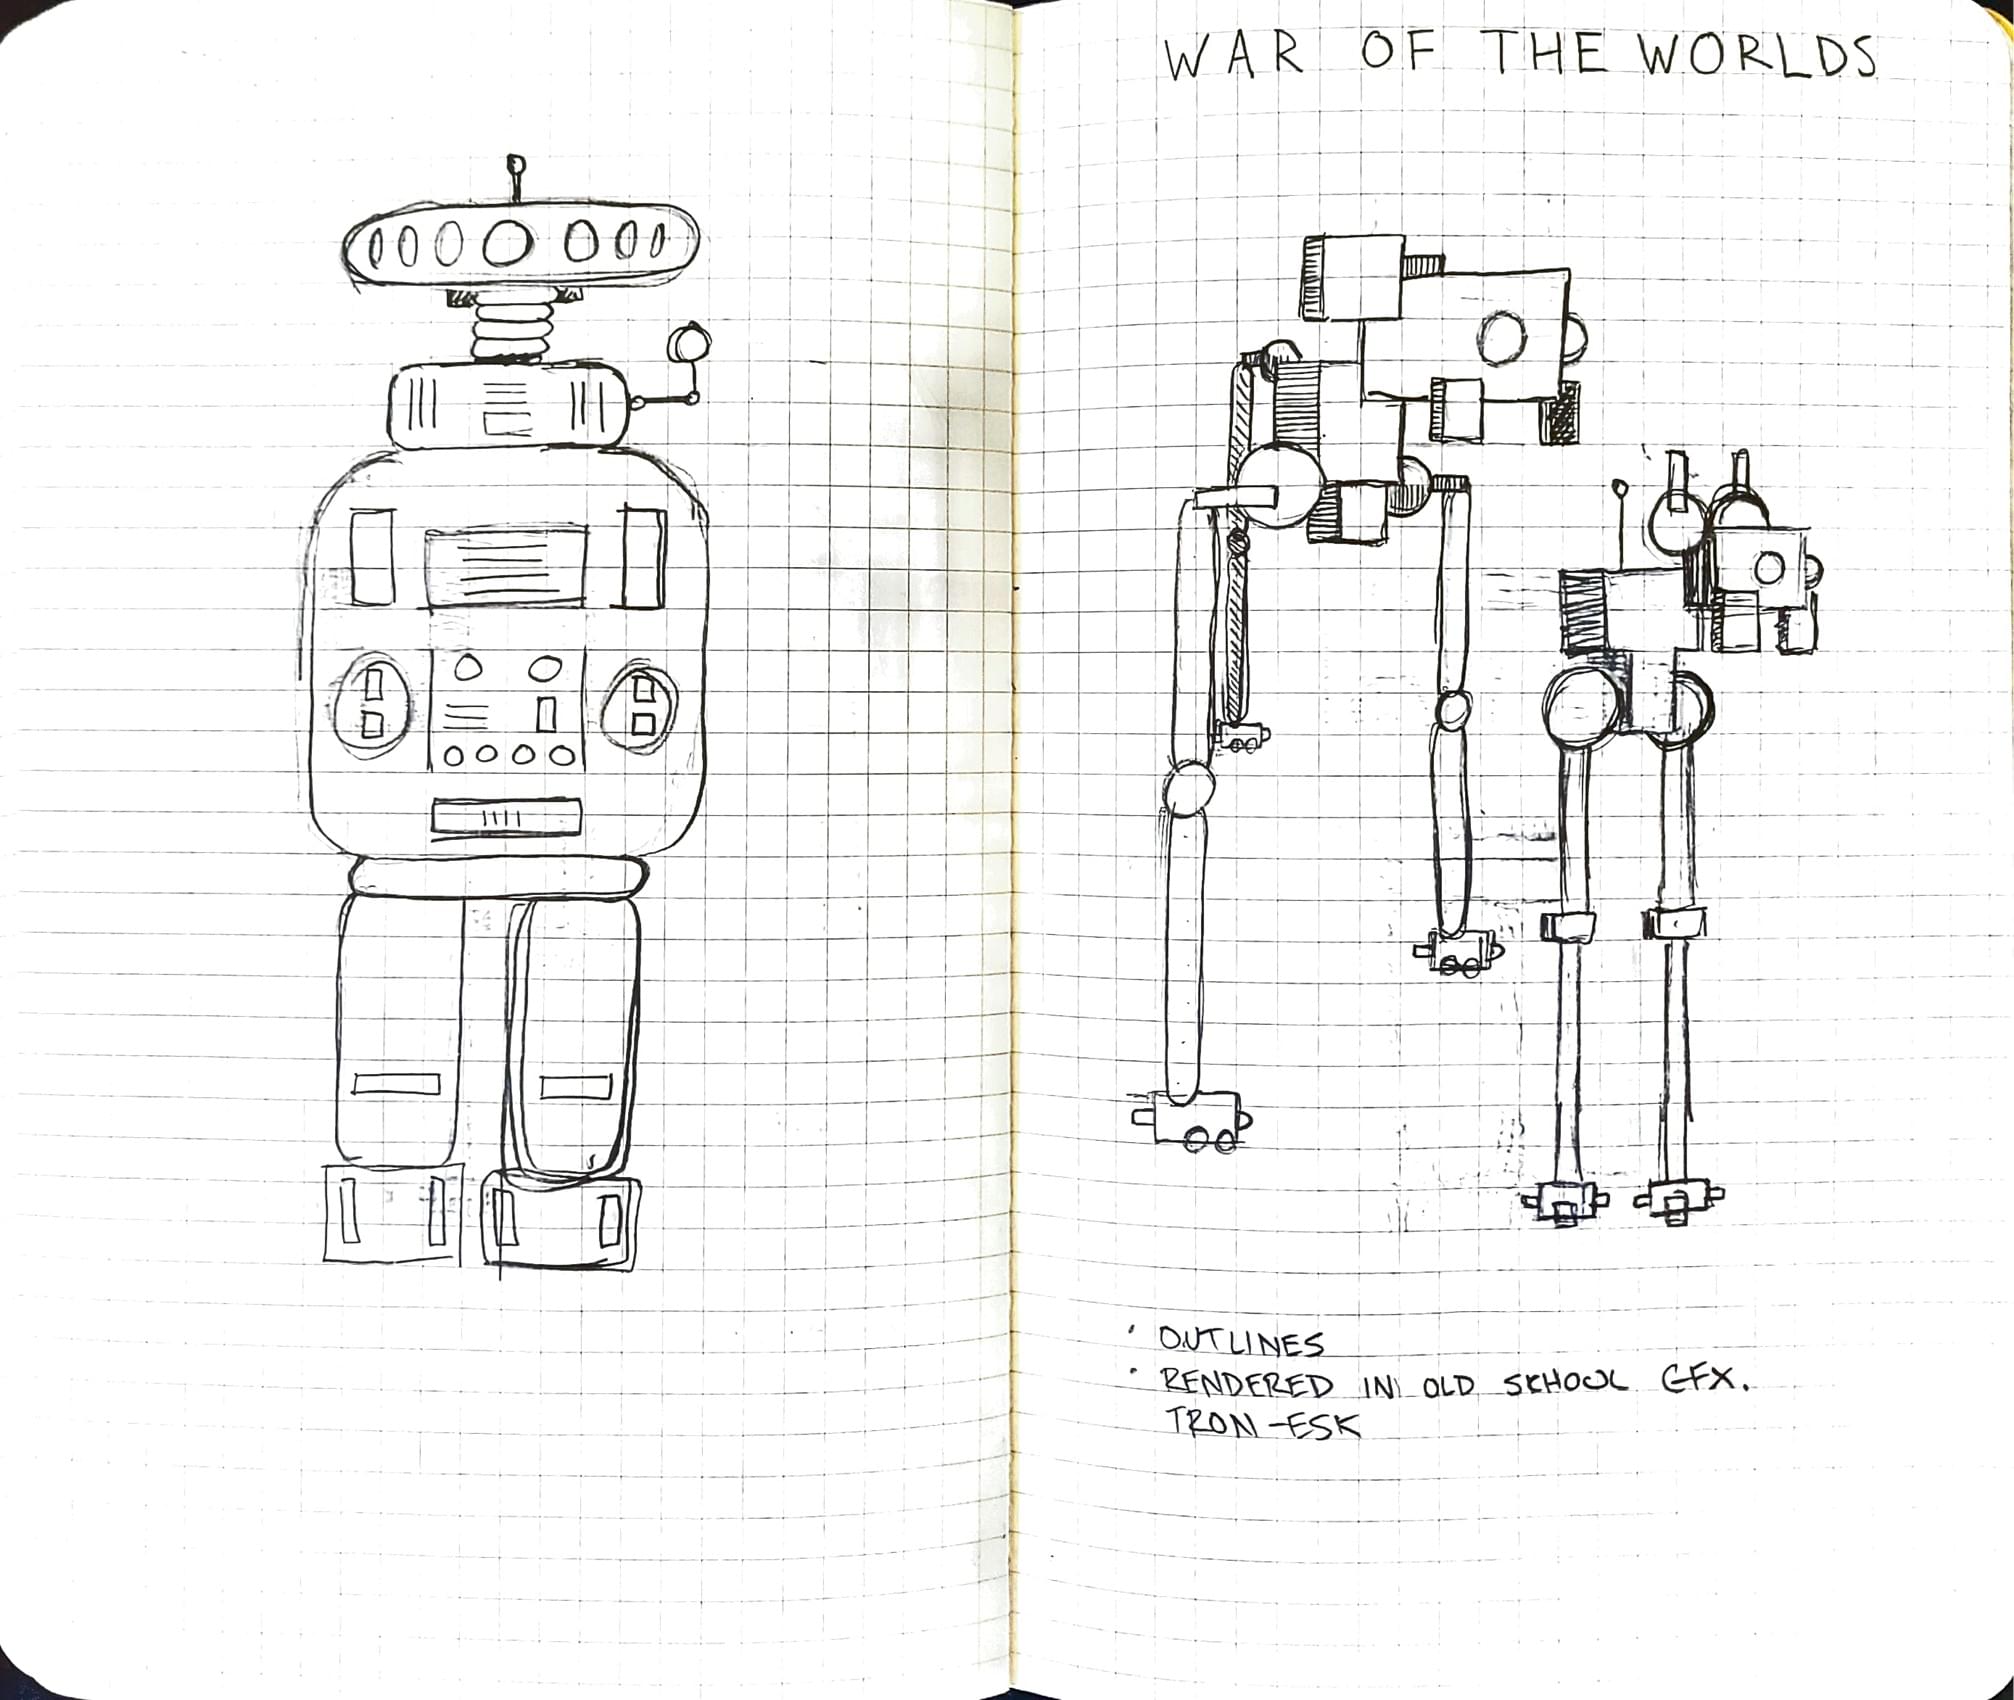 WAR OF THE WORLDS
· OUTLINES
· RENDERED IN OLD SCHOOL GFX.
TRON-ESK